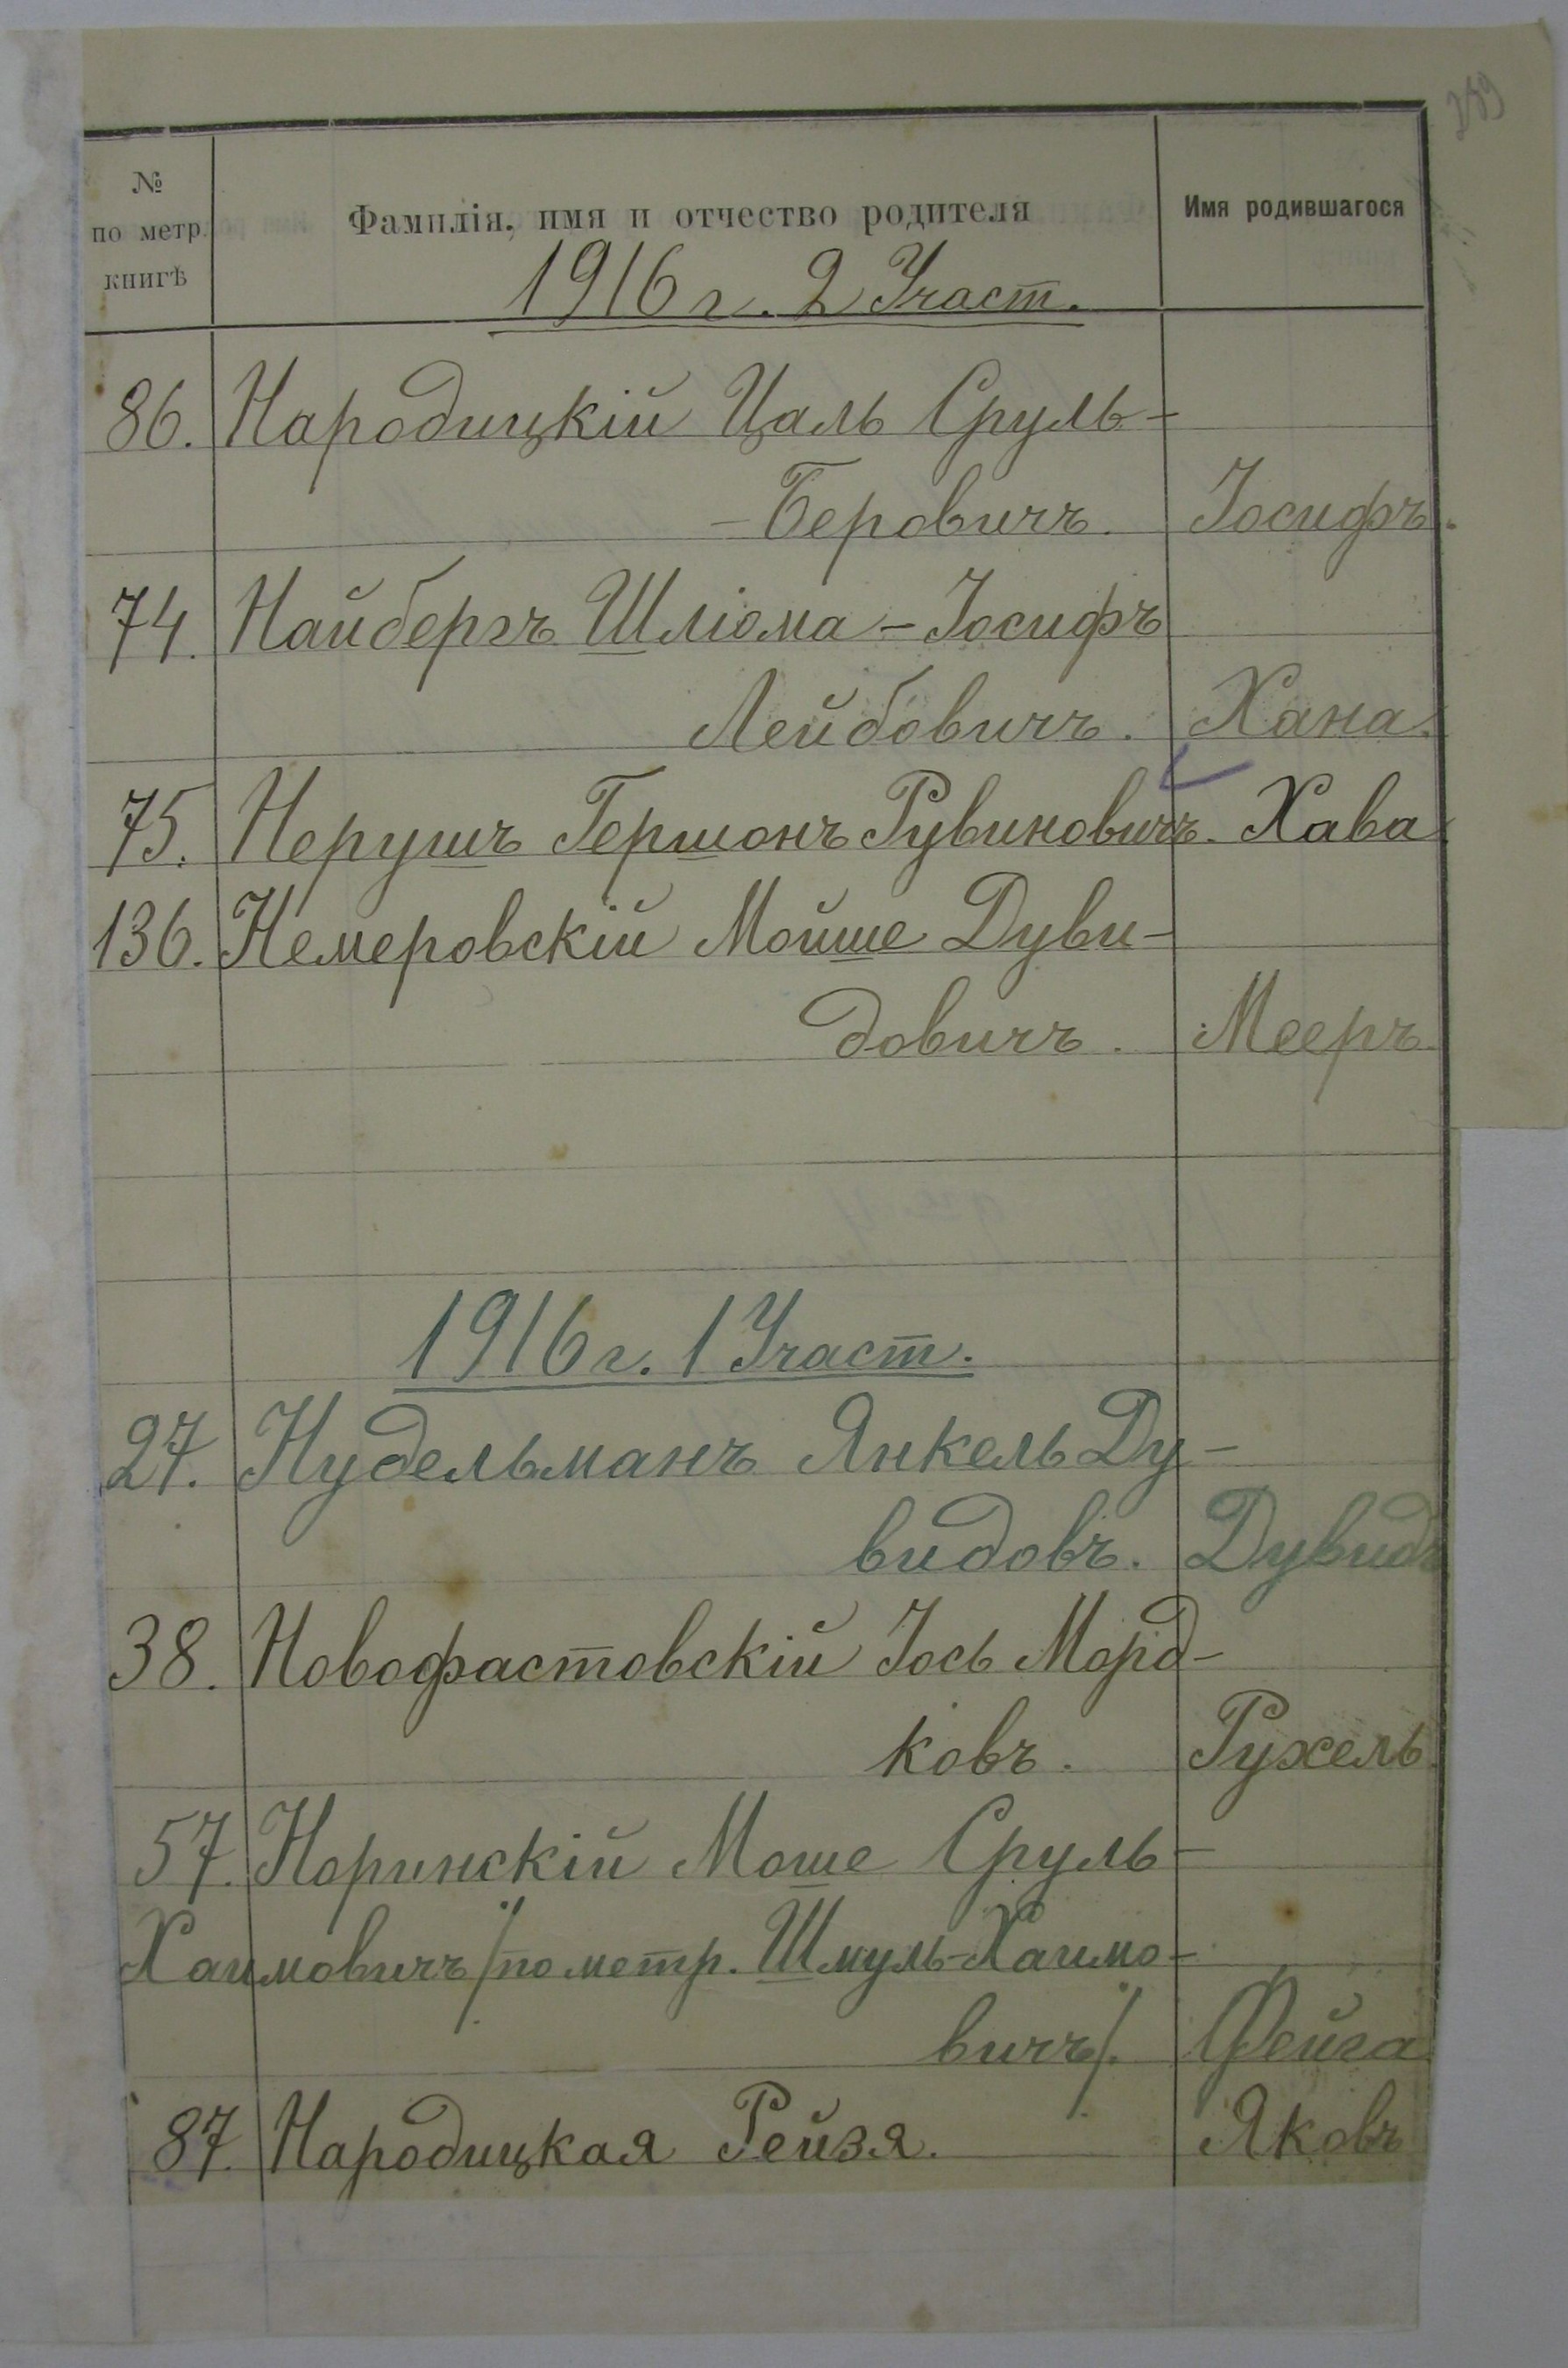 289
№
по метр.
книгѣ
Фамилія, имя и отчество родителя
Имя родившагося
1916 г. 2 Участ.
86. Народицкій Цаль Сруль-
-Беровичъ. Іосифъ.
74. Найбергъ Шліома-Іосифъ
Лейбовичъ. Хана.
75. Нерушъ Гершонъ Рувиновичъ. Хава.
136. Немеровскій Мойше Дуви-
довичъ. Мееръ.
1916 г. 1 Участ.
27. Нудельманъ Янкель Ду-
видовъ. Дувидъ
38. Новофастовскій Іось Морд-
ковъ. Рухель.
57. Норинскій Моше Сруль-
Хаимовичъ /по метр. Шмуль-Хаимо-
вичъ/. Фейга.
87. Народицкая Рейзя. Яковъ